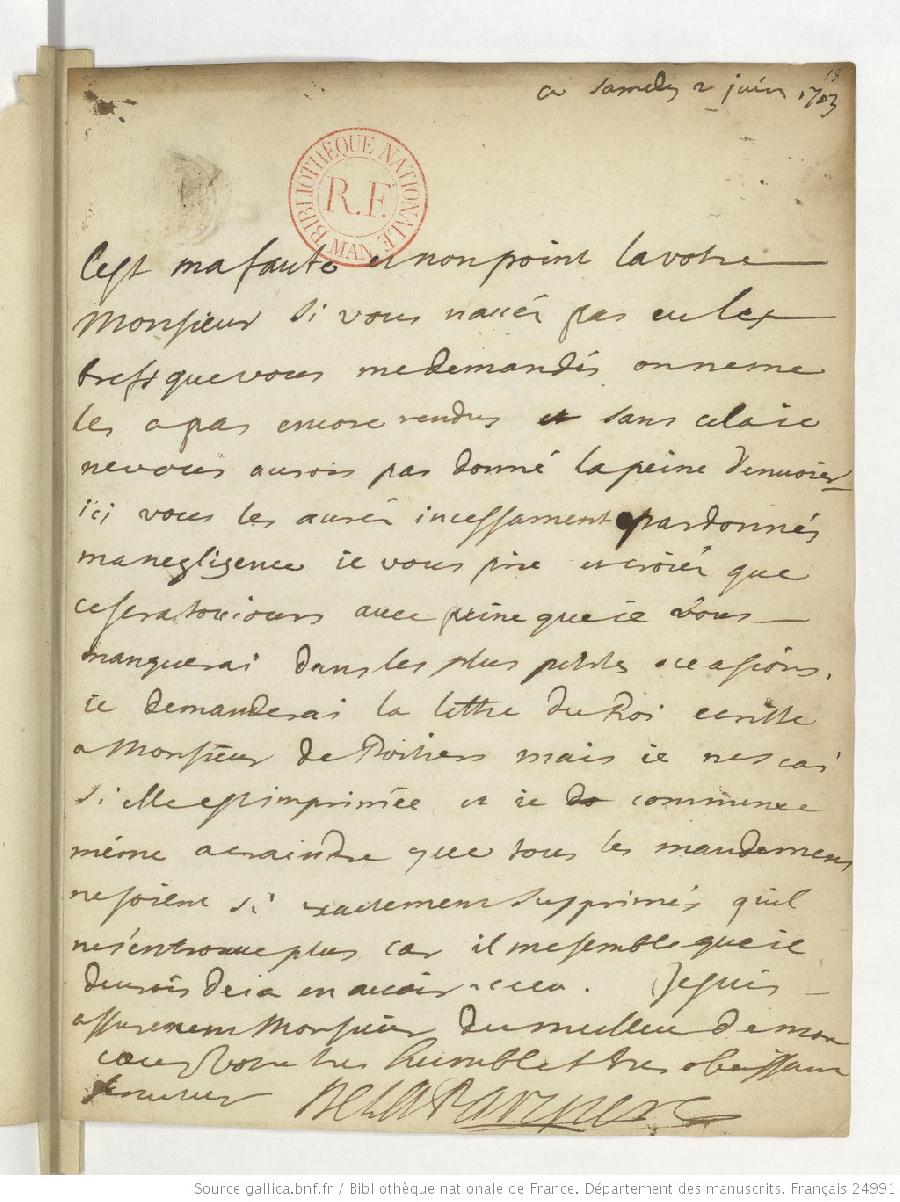 18
ce samedy 2 juin 1703
BIBLIOTHEQUE NATIONALE
R.F.
MAN
Cest ma faute et non point la votre
Monsieur si vous navés pas eu les
brefs que vous me demandés on ne me
les a pas encore rendus et sans cela ie
ne vous aurois pas donné la peine denuoier
ici vous les aurés incessament pardonnés
ma negligence ie vous prie et croiés que
ce sera toujours avec peine que ie vous
manquerai dans les plus petites occasions.
ie demanderai la lettre du Roi ecritte
a Monsieur de Poitiers mais ie ne scai
si elle est imprimée et ie commence
même a craindre que tous les mandemens
ne soient si exactement supprimés quil
ne sen trouue plus car il me semble que ie
deurois deia en auoir receu. Je suis
assurement Monsieur du meilleur de mon
coeur Votre tres humble et tres obeissant
seruiteur
Source gallica.bnf.fr / Bibliothèque nationale de France. Département des manuscrits. Français 24991